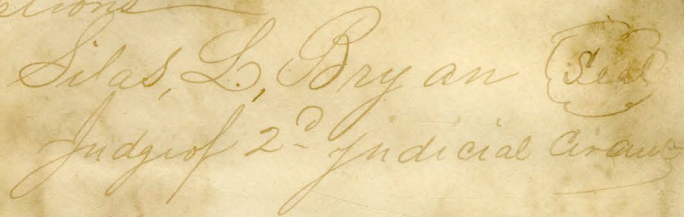 Silas, L, Bryan Seal
Judge of 2d Judicial Circuit